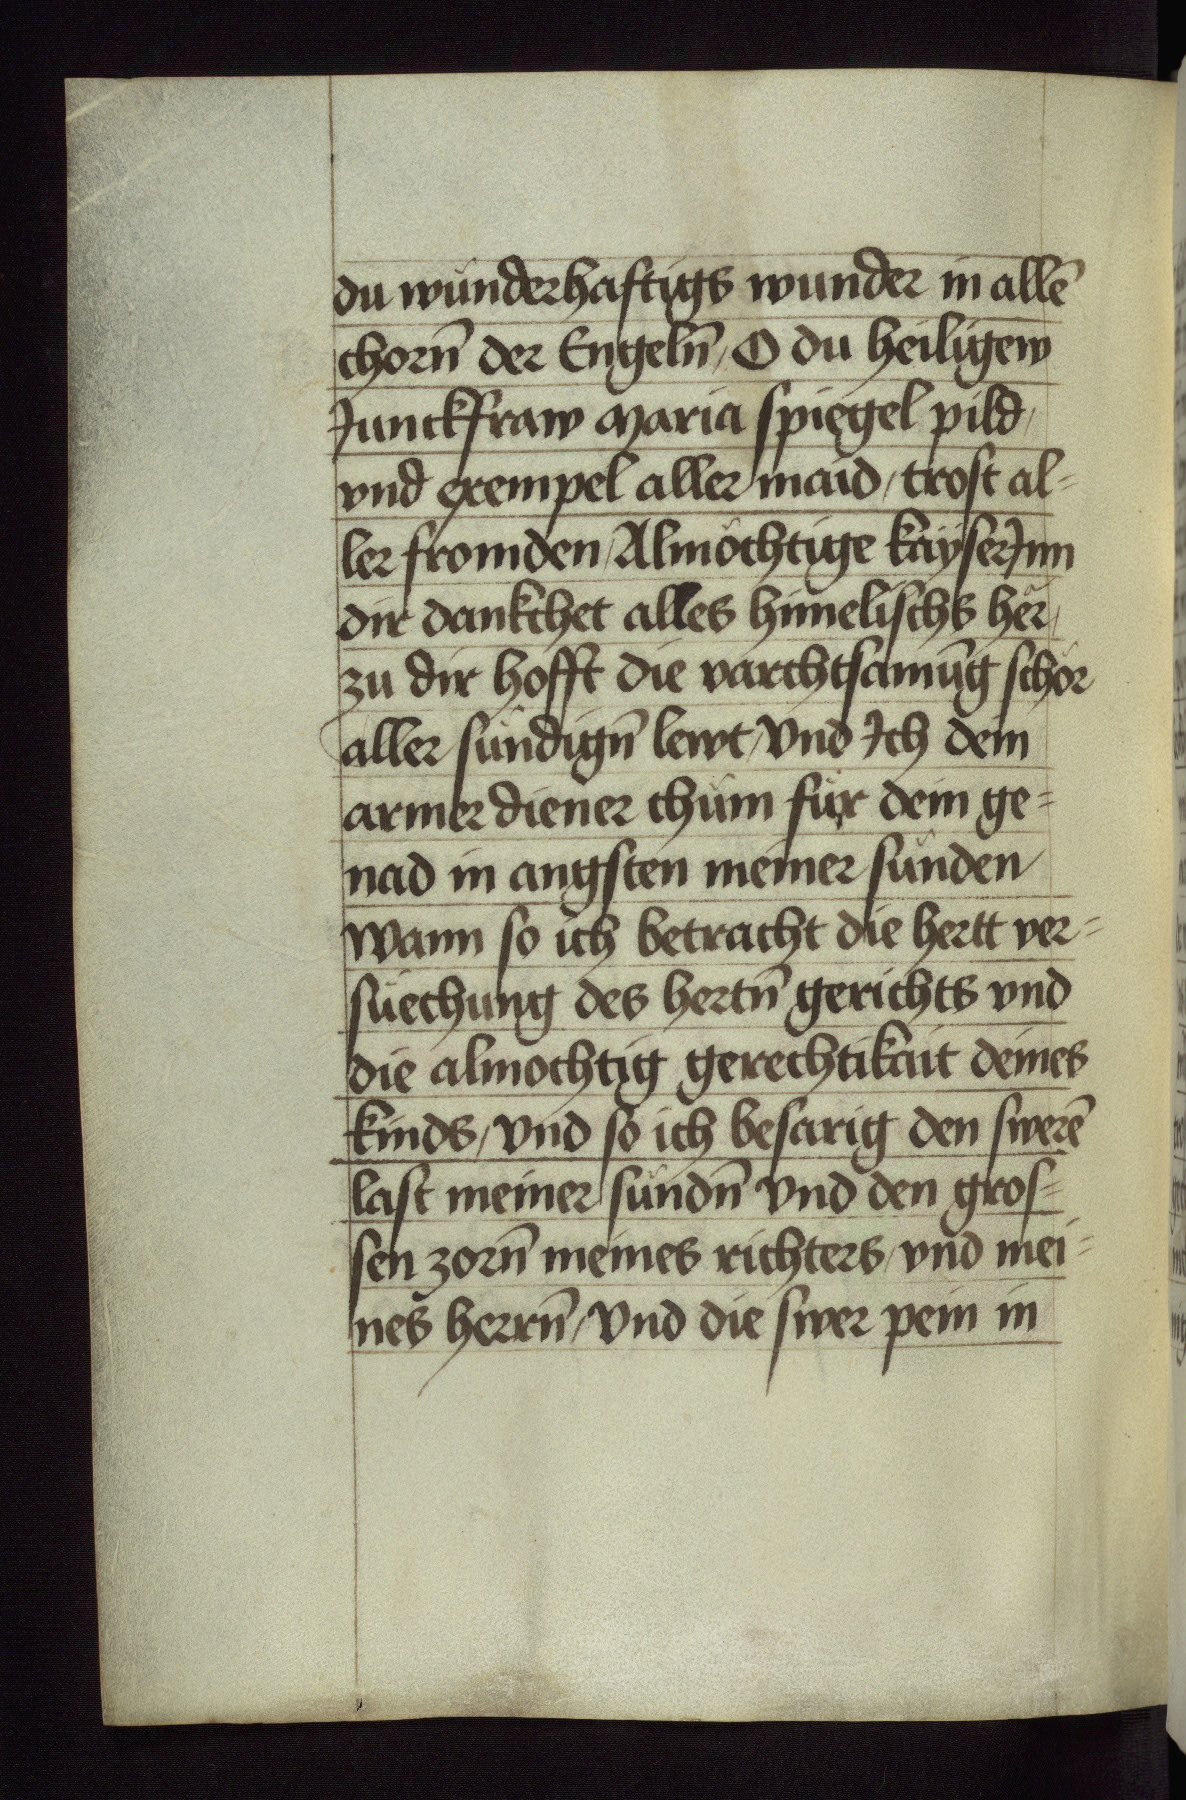 du wůnderhaftigs wunder in allē
chorn̄ der Engeln̄ / O du heiligew
Junckfraw Maria spiegel pild /
vnd exempel aller maid / trost al=
ler fromden / Almöchtige kayserJnn
dir dankchet alles himelischs her /
zu dir hofft die varchtsamūg schör
aller sündign̄ lewt / Vnd Ich dein
armer diener chům für dein ge=
nad in angsten meiner sünden /
Wann so ich betracht die hertt ver=
süechung des hertn̄ gerichts vnd
die almochtig gerechtikait deines
kinds / Vnd so ich besarig den swerē
last meiner sündn̄ Vnd den gros=
sen zorn̄ meines richters / vnd mei=
nes herrn̄ / Vnd die swer pein in